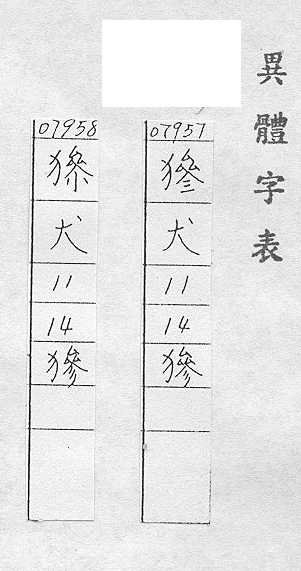 異體字表
07957
犬
11
14
㺑
07958
犬
11
14
㺑